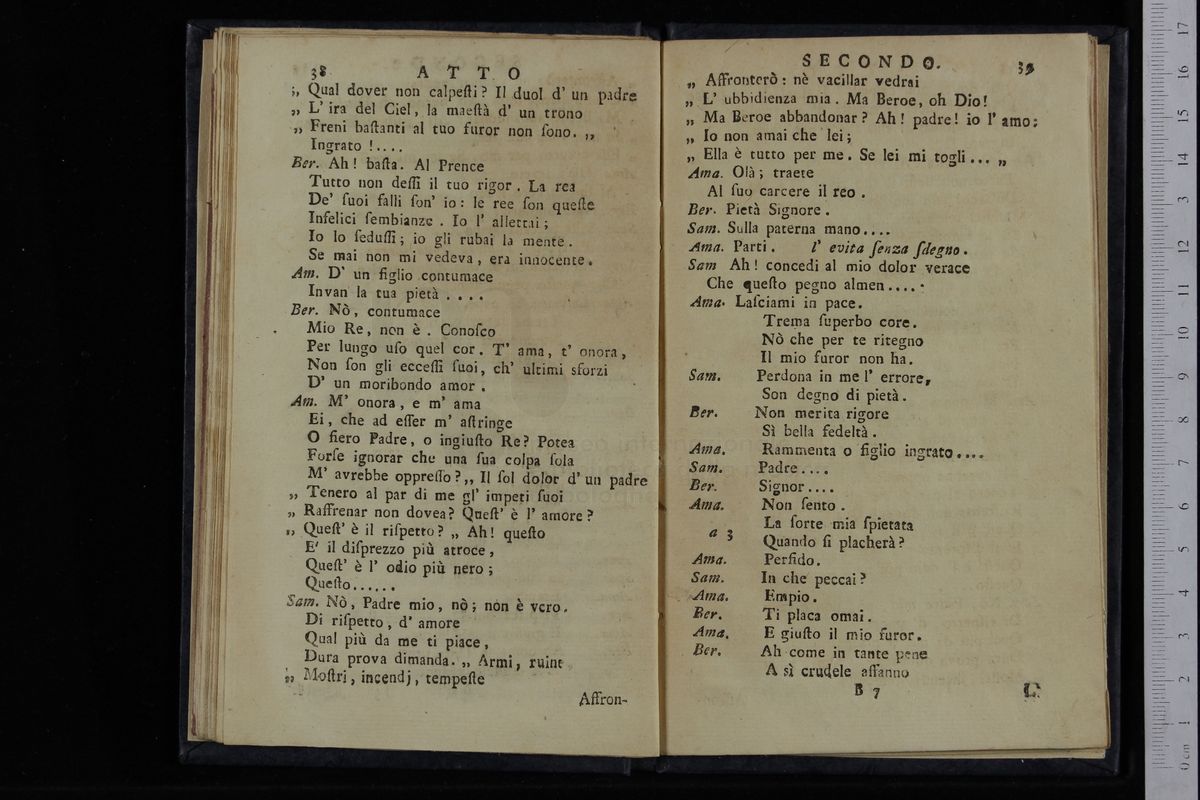 38 ATTO
„ Qual dover non calpeſti? Il duol d' un padre
„ L' ira del Ciel, la maeſtà d' un trono
„ Freni baſtanti al tuo furor non ſono. „
Ingrato !....
Ber. Ah! baſta. Al Prence
Tutto non deſſi il tuo rigor. La rea
De' ſuoi falli ſon' io: le ree ſon queſte
Infelici ſembianze. Io l' allettai;
Io lo ſeduſſi; io gli rubai la mente.
Se mai non mi vedeva, era innocente.
Am. D' un figlio contumace
Invan la tua pietà ....
Ber. Nò, contumace
Mio Re, non è. Conoſco
Per lungo uſo quel cor. T' ama, t' onora,
Non ſon gli ecceſſi ſuoi, ch' ultimi sforzi
D' un moribondo amor.
Am. M' onora, e m' ama
Ei, che ad eſſer m' aſtringe
O fiero Padre, o ingiuſto Re? Potea
Forſe ignorar che una ſua colpa ſola
M' avrebbe oppreſſo?„ Il ſol dolor d' un padre
„ Tenero al par di me gl' impeti ſuoi
„ Raffrenar non dovea? Queſt' è l' amore?
„ Queſt' è il riſpetto? „ Ah! queſto
E' il diſprezzo più atroce,
Queſt' è l' odio più nero;
Queſto......
Sam. Nò, Padre mio, nò; non è vero.
Di riſpetto, d' amore
Qual più da me ti piace,
Dura prova dimanda. „ Armi, ruine
„ Moſtri, incendj, tempeſte
Affron-
SECONDO. 39
„ Affronterò: nè vacillar vedrai
„ L' ubbidienza mia. Ma Beroe, oh Dio!
„ Ma Beroe abbandonar? Ah! padre! io l' amo:
„ Io non amai che lei;
„ Ella è tutto per me. Se lei mi togli... „
Ama. Olà; traete
Al ſuo carcere il reo.
Ber. Pietà Signore.
Sam. Sulla paterna mano....
Ama. Parti. l' evita ſenza ſdegno.
Sam Ah! concedi al mio dolor verace
Che queſto pegno almen....
Ama. Laſciami in pace.
Trema ſuperbo core.
Nò che per te ritegno
Il mio furor non ha.
Sam. Perdona in me l' errore,
Son degno di pietà.
Ber. Non merita rigore
Sì bella fedeltà.
Ama. Rammenta o figlio ingrato....
Sam. Padre....
Ber. Signor....
Ama. Non ſento.
a 3 La ſorte mia ſpietata
Quando ſi placherà?
Ama. Perfido.
Sam. In che peccai?
Ama. Empio.
Ber. Ti placa omai.
Ama. E giuſto il mio furor.
Ber. Ah come in tante pene
A sì crudele affanno
B 7
0 cm 1 2 3 4 5 6 7 8 9 10 11 12 13 14 15 16 17